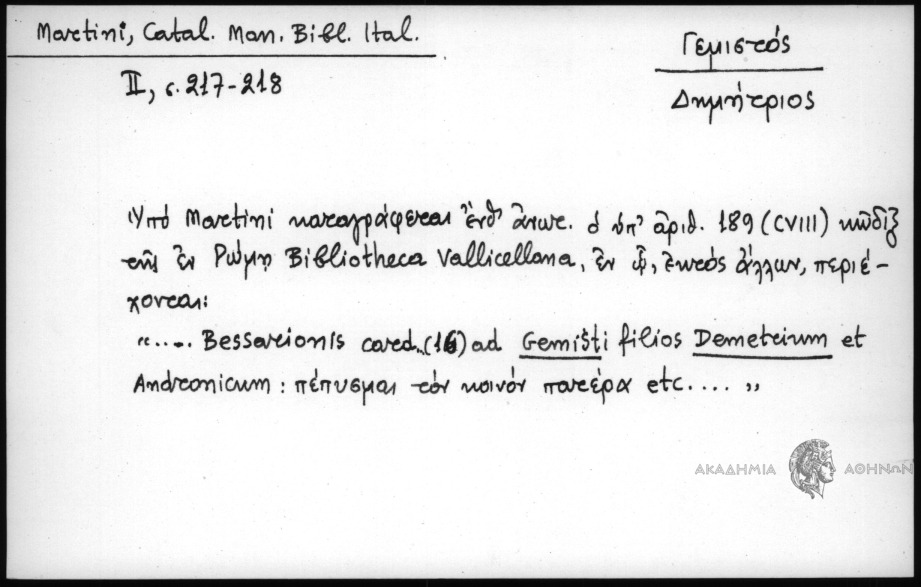 Martini, Catal. Man. Bibl. Ital.
II, σ. 217-218
Γεμιστός
Δημήτριος
Ὑπό Martini καταγράφεται ἔνθ' ἄνωτ. ὁ ὑπ' ἀριθ. 189 (CVIII) κῶδιξ
τῆς ἐν Ῥώμῃ Bibliotheca Vallicellana, ἐν ᾧ, ἐκτός ἄλλων, περιέ-
χονται:
"..... Bessarionis card. (16) ad Gemisti filios Demetrium et
Andronicum: πέπυσμαι τόν κοινόν πατέρα etc.... "
ΑΚΑΔΗΜΙΑ ΑΘΗΝΩΝ